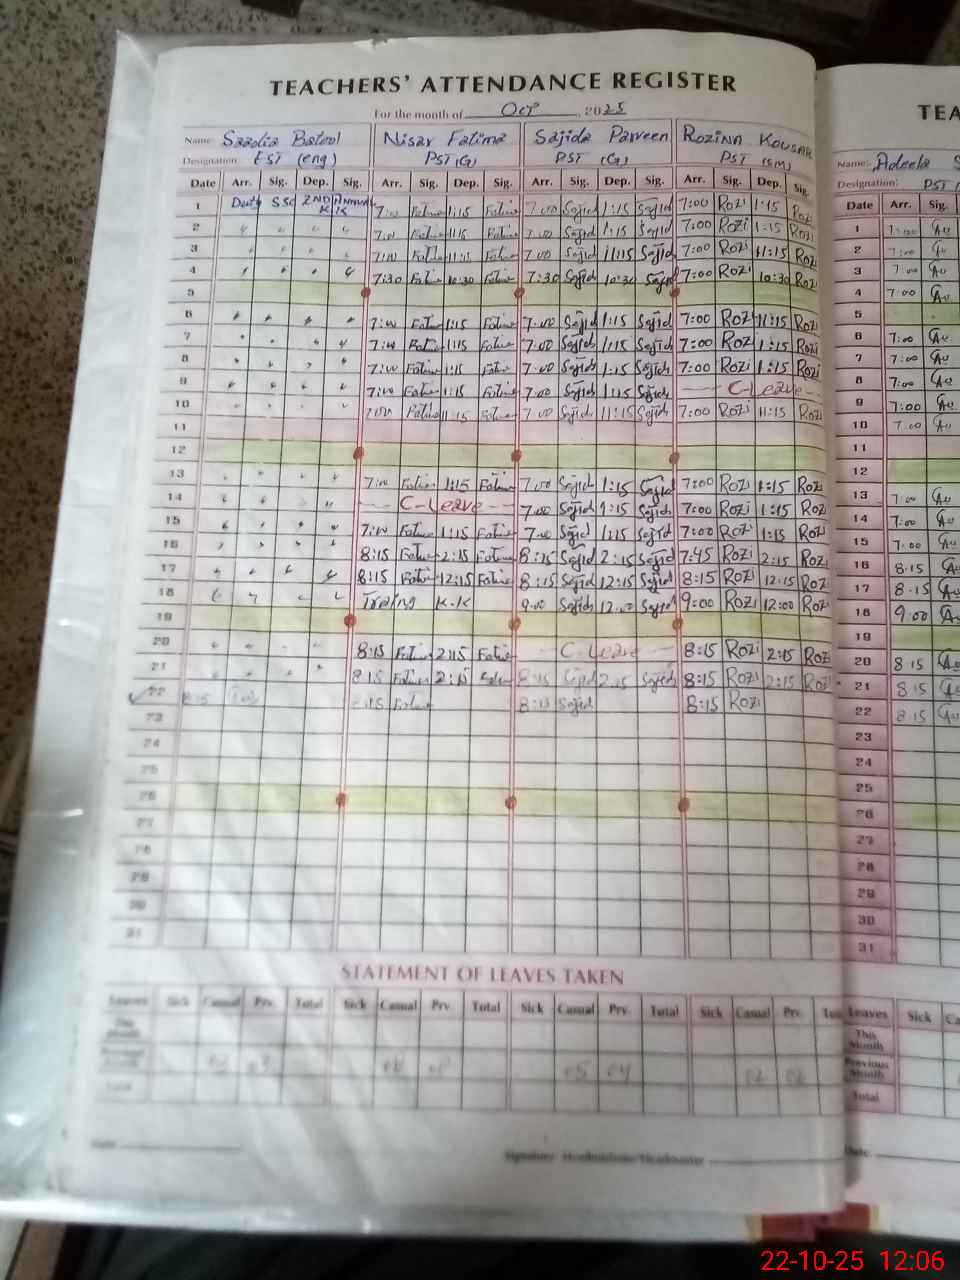 TEACHERS' ATTENDANCE REGISTER
For the month of Oct, 2025
Name Saadia Batool Nisar Fatima Sajida Parveen Rozina Kousar
Designation: EST (eng) PST (G) PST (G) PST (SM)
Date Arr. Sig. Dep. Sig. Arr. Sig. Dep. Sig. Arr. Sig. Dep. Sig. Arr. Sig. Dep. Sig.
1 Duty SSC 2ND Annual 7:00 Fatima 1:15 Fatima 7:00 Sajid 1:15 Sajid 7:00 Rozi 1:15 Rozi
2 " " " " 7:00 Fatima 1:15 Fatima 7:00 Sajid 1:15 Sajid 7:00 Rozi 1:15 Rozi
3 " " " 7:00 Fatima 11:15 Fatima 7:00 Sajid 11:15 Sajid 7:00 Rozi 11:15 Rozi
4 " " " " 7:30 Fatima 10:30 Fatima 7:30 Sajid 10:30 Sajid 7:00 Rozi 10:30 Rozi
5
6 " " " " 7:00 Fatima 1:15 Fatima 7:00 Sajid 1:15 Sajid 7:00 Rozi 11:15 Rozi
7 " " " 7:00 Fatima 1:15 Fatima 7:00 Sajid 1:15 Sajid 7:00 Rozi 1:15 Rozi
8 " " " " 7:00 Fatima 1:15 Fatima 7:00 Sajid 1:15 Sajid 7:00 Rozi 1:15 Rozi
9 " " " " 7:00 Fatima 1:15 Fatima 7:00 Sajid 1:15 Sajid C-Leave
10 " " " " 7:00 Fatima 11:15 Fatima 7:00 Sajid 11:15 Sajid 7:00 Rozi 11:15 Rozi
11
12
13 " " " " 7:00 Fatima 1:15 Fatima 7:00 Sajid 1:15 Sajid 7:00 Rozi 1:15 Rozi
14 " " " " C-Leave 7:00 Sajid 1:15 Sajid 7:00 Rozi 1:15 Rozi
15 " " " " 7:00 Fatima 1:15 Fatima 7:00 Sajid 1:15 Sajid 7:00 Rozi 1:15 Rozi
16 " " " " 8:15 Fatima 2:15 Fatima 8:15 Sajid 2:15 Sajid 7:45 Rozi 2:15 Rozi
17 " " " " 8:15 Fatima 12:15 Fatima 8:15 Sajid 12:15 Sajid 8:15 Rozi 12:15 Rozi
18 " " " " Traing K.K 9:00 Sajid 12:00 Sajid 9:00 Rozi 12:00 Rozi
19
20 " " " " 8:15 Fatima 2:15 Fatima C-Leave 8:15 Rozi 2:15 Rozi
21 " " " 8:15 Fatima 2:15 8:15 Sajid 2:15 Sajid 8:15 Rozi 2:15 Rozi
22 8:15 8:15 Fatima 8:15 Sajid 8:15 Rozi
23
24
25
26
27
28
29
30
31
STATEMENT OF LEAVES TAKEN
Leaves Sick Casual Prv. Total Sick Casual Prv. Total Sick Casual Prv. Total Sick Casual Prv.
This Month
05 04 02
Total
Signature Headmistress/Headmaster
TEA
Name: Adeela S
Designation: PST
Date Arr. Sig.
1 7:00
2 7:00
3 7:00
4 7:00
5
6 7:00
7 7:00
8 7:00
9 7:00
10 7:00
11
12
13 7:00
14 7:00
15 7:00
16 8:15
17 8:15
18 9:00
19
20 8:15
21 8:15
22 8:15
23
24
25
26
27
28
29
30
31
Leaves Sick
This Month
Previous Month
Total
Date:
22-10-25 12:06